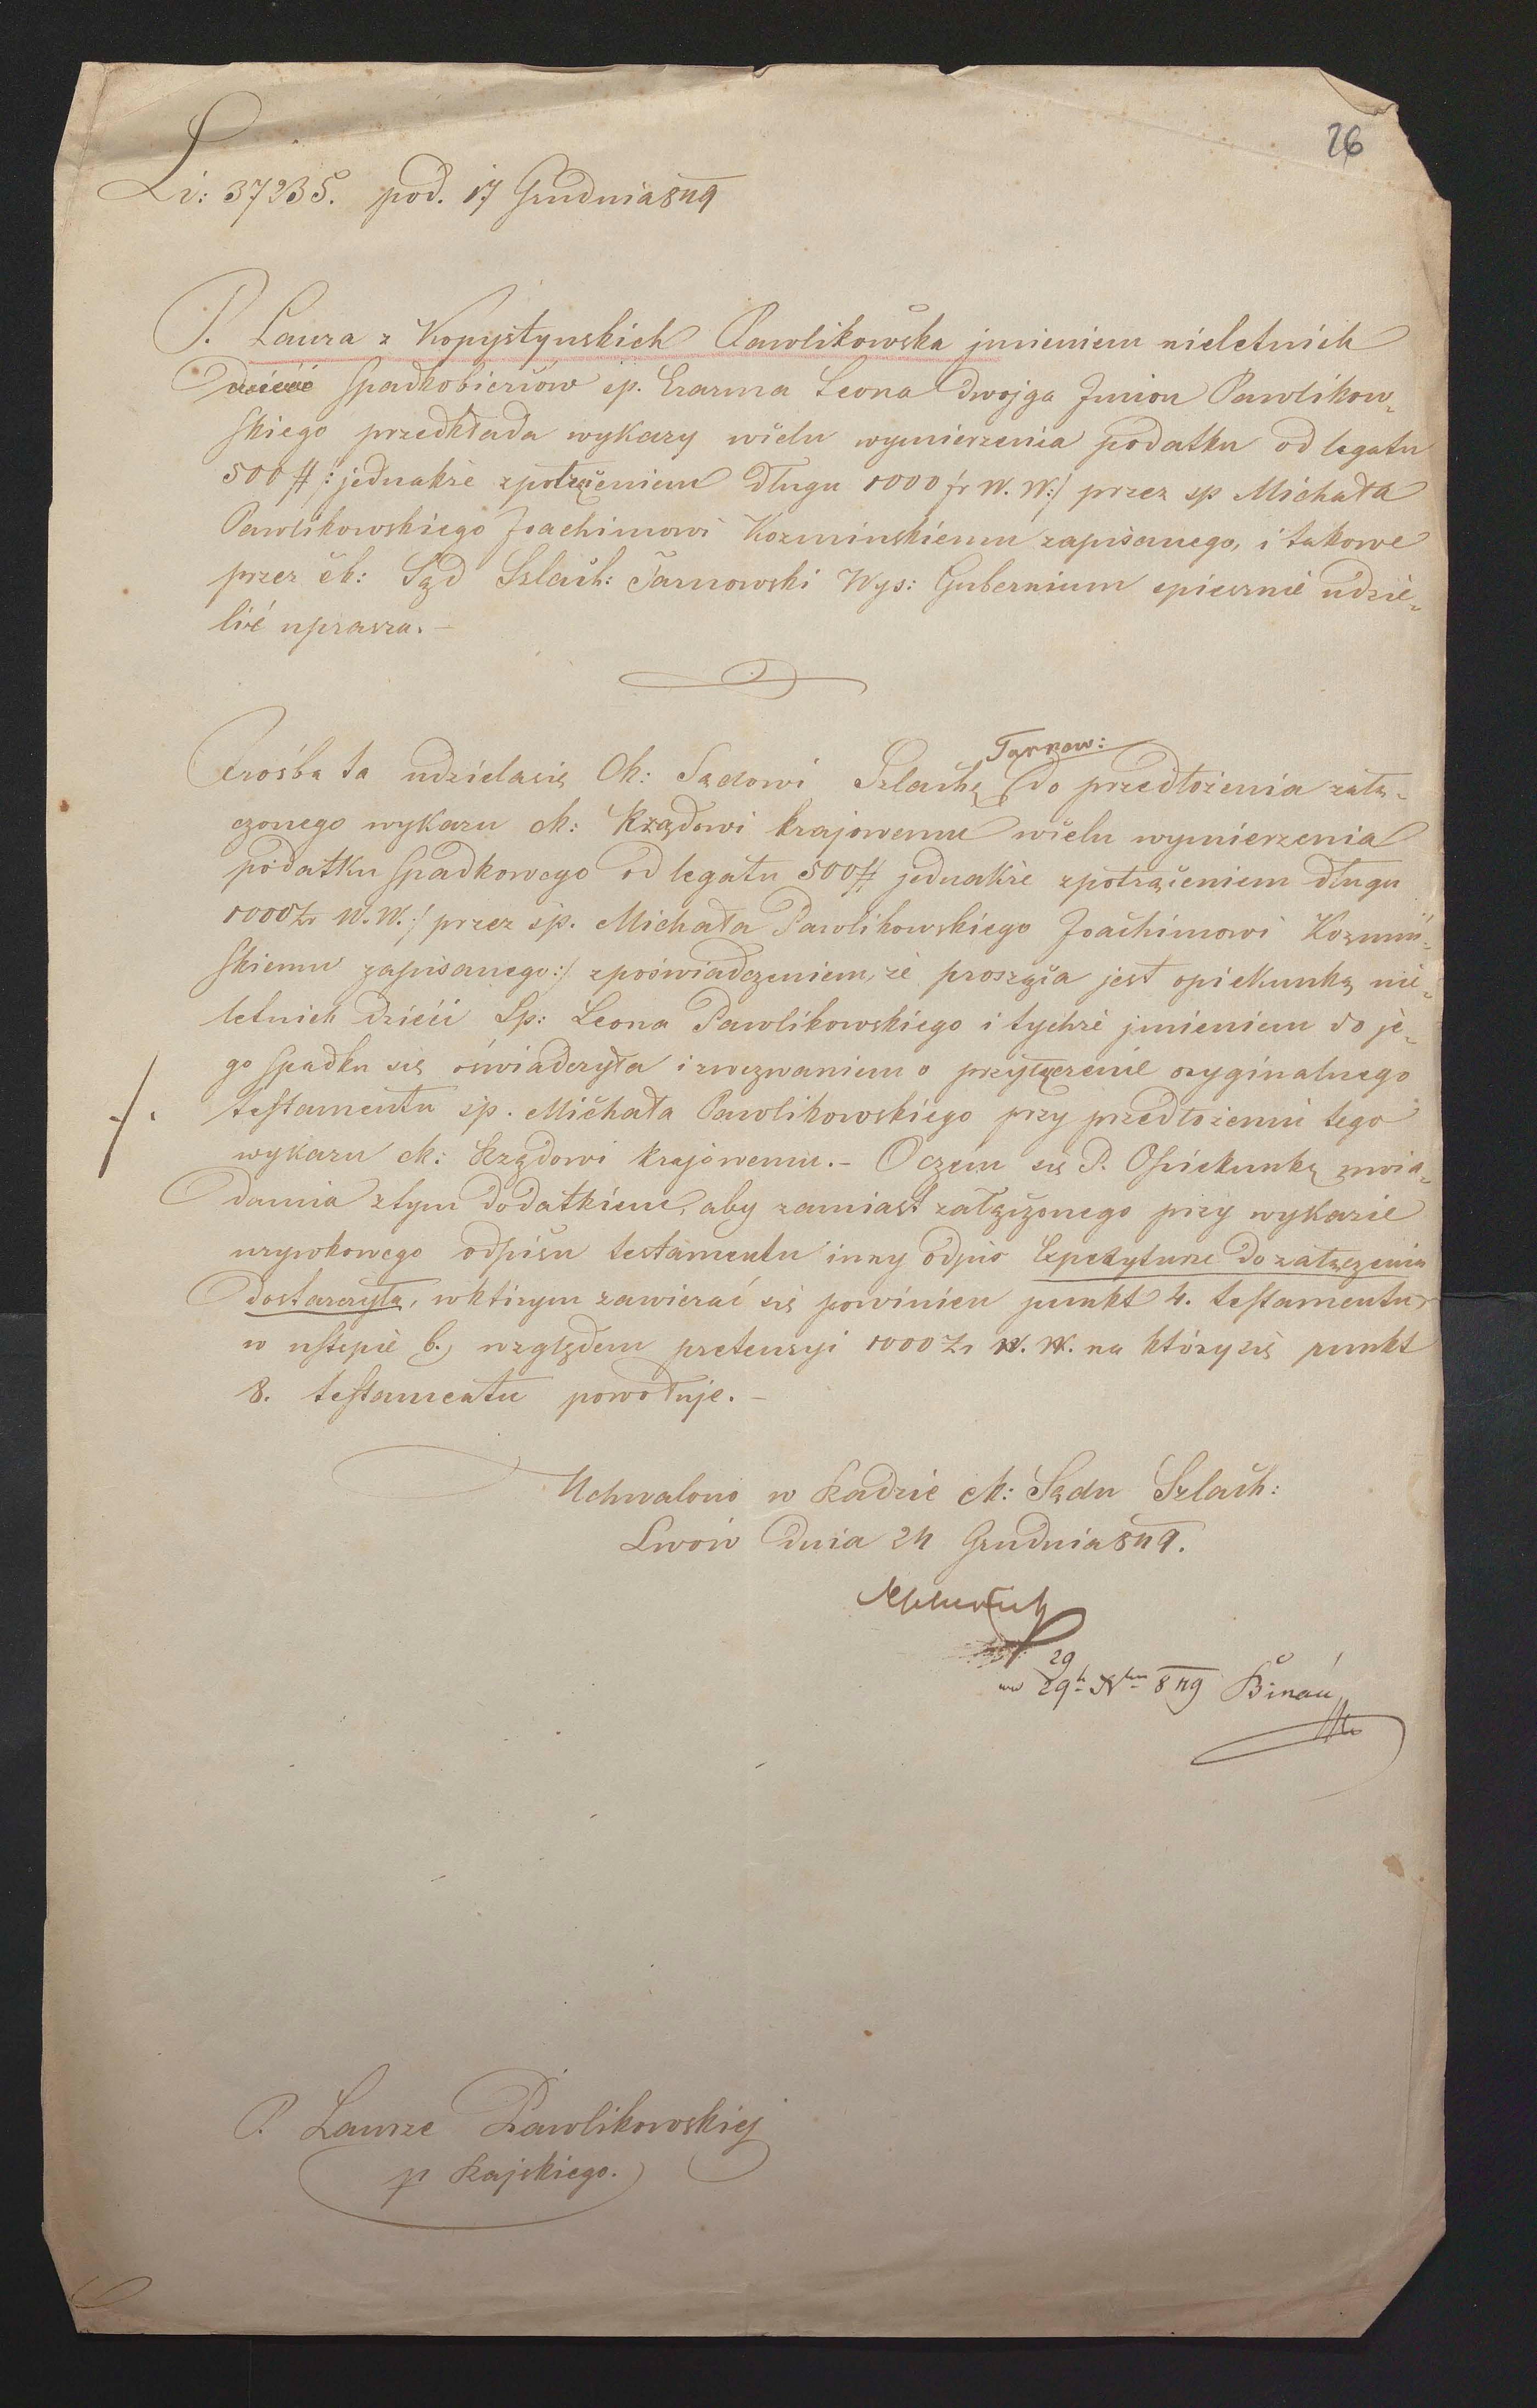 26
Li: 37235. pod. 17 Grudnia 849
P. Laura z Kopystynskich Pawlikowska jmieniem nieletnich
dzieci Spadkobierców śp. Erazma Leona dwojga Jmion Pawlikow-
skiego przedkłada wykazy wcelu wymierzenia podatku od legatu
500 #: jednakże zpotrąceniem długu 1000 fr W. W:/ przez sp Michała
Pawlikowskiego Joachimowi Kozminskiemu zapisanego, i takowe
przez ck: Sąd Szlach: Tarnowski Wys: Gubernium spiesznie udzie-
lić uprasza. –
Prośba ta udzielasię Ck: Sądowi Szlach: Tarnow: do przedłożenia załą-
czonego wykazu ck: Rządowi krajowemu wcelu wymierzenia
podatku spadkowego od legatu 500 # jednakże zpotrąceniem długu
1000 Zr W. W./ przez śp. Michała Pawlikowskiego Joachimowi Kozmiń-
skiemu zapisanego:/ zpoświadczeniem, że prosząca jest opiekunką nie-
letnich dzieci Sp: Leona Pawlikowskiego i tychże jmieniem do je-
go spadku się oświadczyła i zwezwaniem o przyłączenie oryginalnego
testamentu śp. Michała Pawlikowskiego przy przedłożeniu tego
wykazu ck: Rządowi krajowemu. – Oczem się P. Opiekunkę uwia-
damia ztym dodatkiem, aby zamiast załączonego przy wykazie
urywkowego odpisu testamentu inny odpis Expedyturze do załączenia
dostarczyła, wktórym zawierać się powinien punkt 4. testamentu
w ustępie b., względem pretensyi 1000 Zr W. W. na który się punkt
8. testamentu powołuje. –
Uchwalono w Radzie ck: Sądu Szlach:
Lwów dnia 24 Grudnia 849.
29
849
P. Laurze Pawlikowskiej
p Rajskiego.